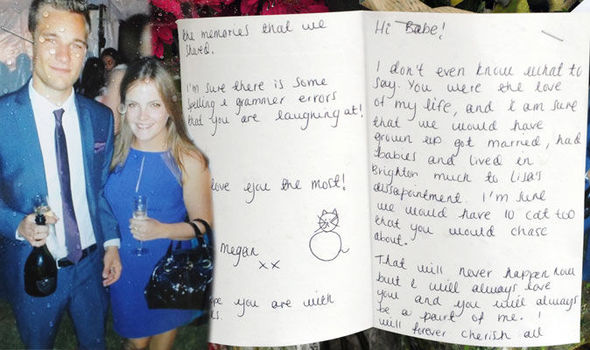 the memories that we
shared.
I'm sure there is some
spelling & grammer errors
that you are laughing at!
love you the most!
megan
xx
you are with
Hi Babe!
I don't even know what to
say. You were the love
of my life, and I am sure
that we would have
grown up got married, had
babies and lived in
Brighton much to Lisa's
dissapointment. I'm sure
we would have 10 cat too
that you would chase
about.
That will never happen now
but I will always love
you and you will always
be a part of me. I
will forever cherish all